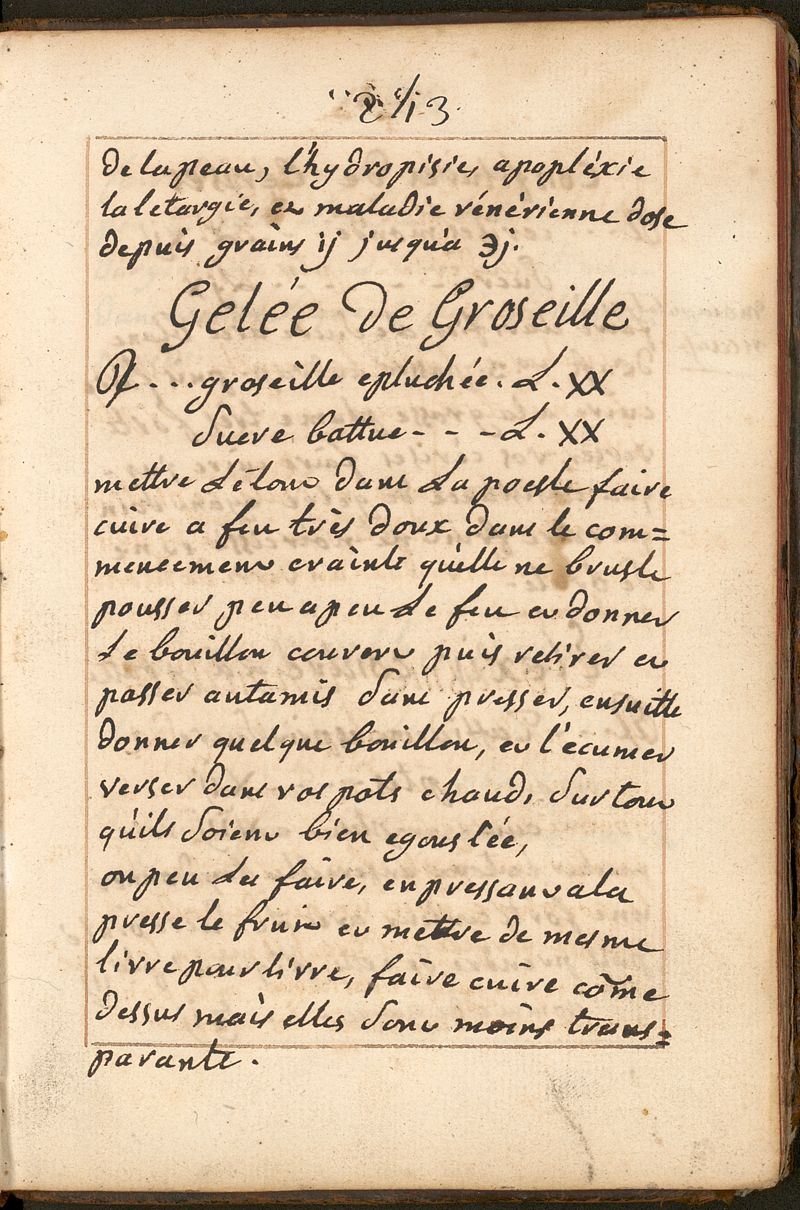 243
de la peau, l'hydropisie, apopléxie
la letargie, et maladie vénérienne dose
depuis grains ij jusqu'a ℈j.
Gelée de Groseille
℞ ... groseille epluchée. L. XX
sucre battue - - - L. XX
mettre le tout dans la poesle faire
cuire a feu très doux dans le com=
mencement crainte qu'elle ne brusle
pousser peu a peu le feu et donner
le bouillon couvert puis retirer et
passer au tamis sans presser, ensuitte
donner quelque bouillon, et l'ecumer
verser dans vos pots chaud, surtout
qu'ils soient bien egoustée,
on peu les faire, en pressant a la
presse le fruit et mettre de mesme
livre pour livre, faire cuire cōme
dessus mais elles sont moins trans=
parante.